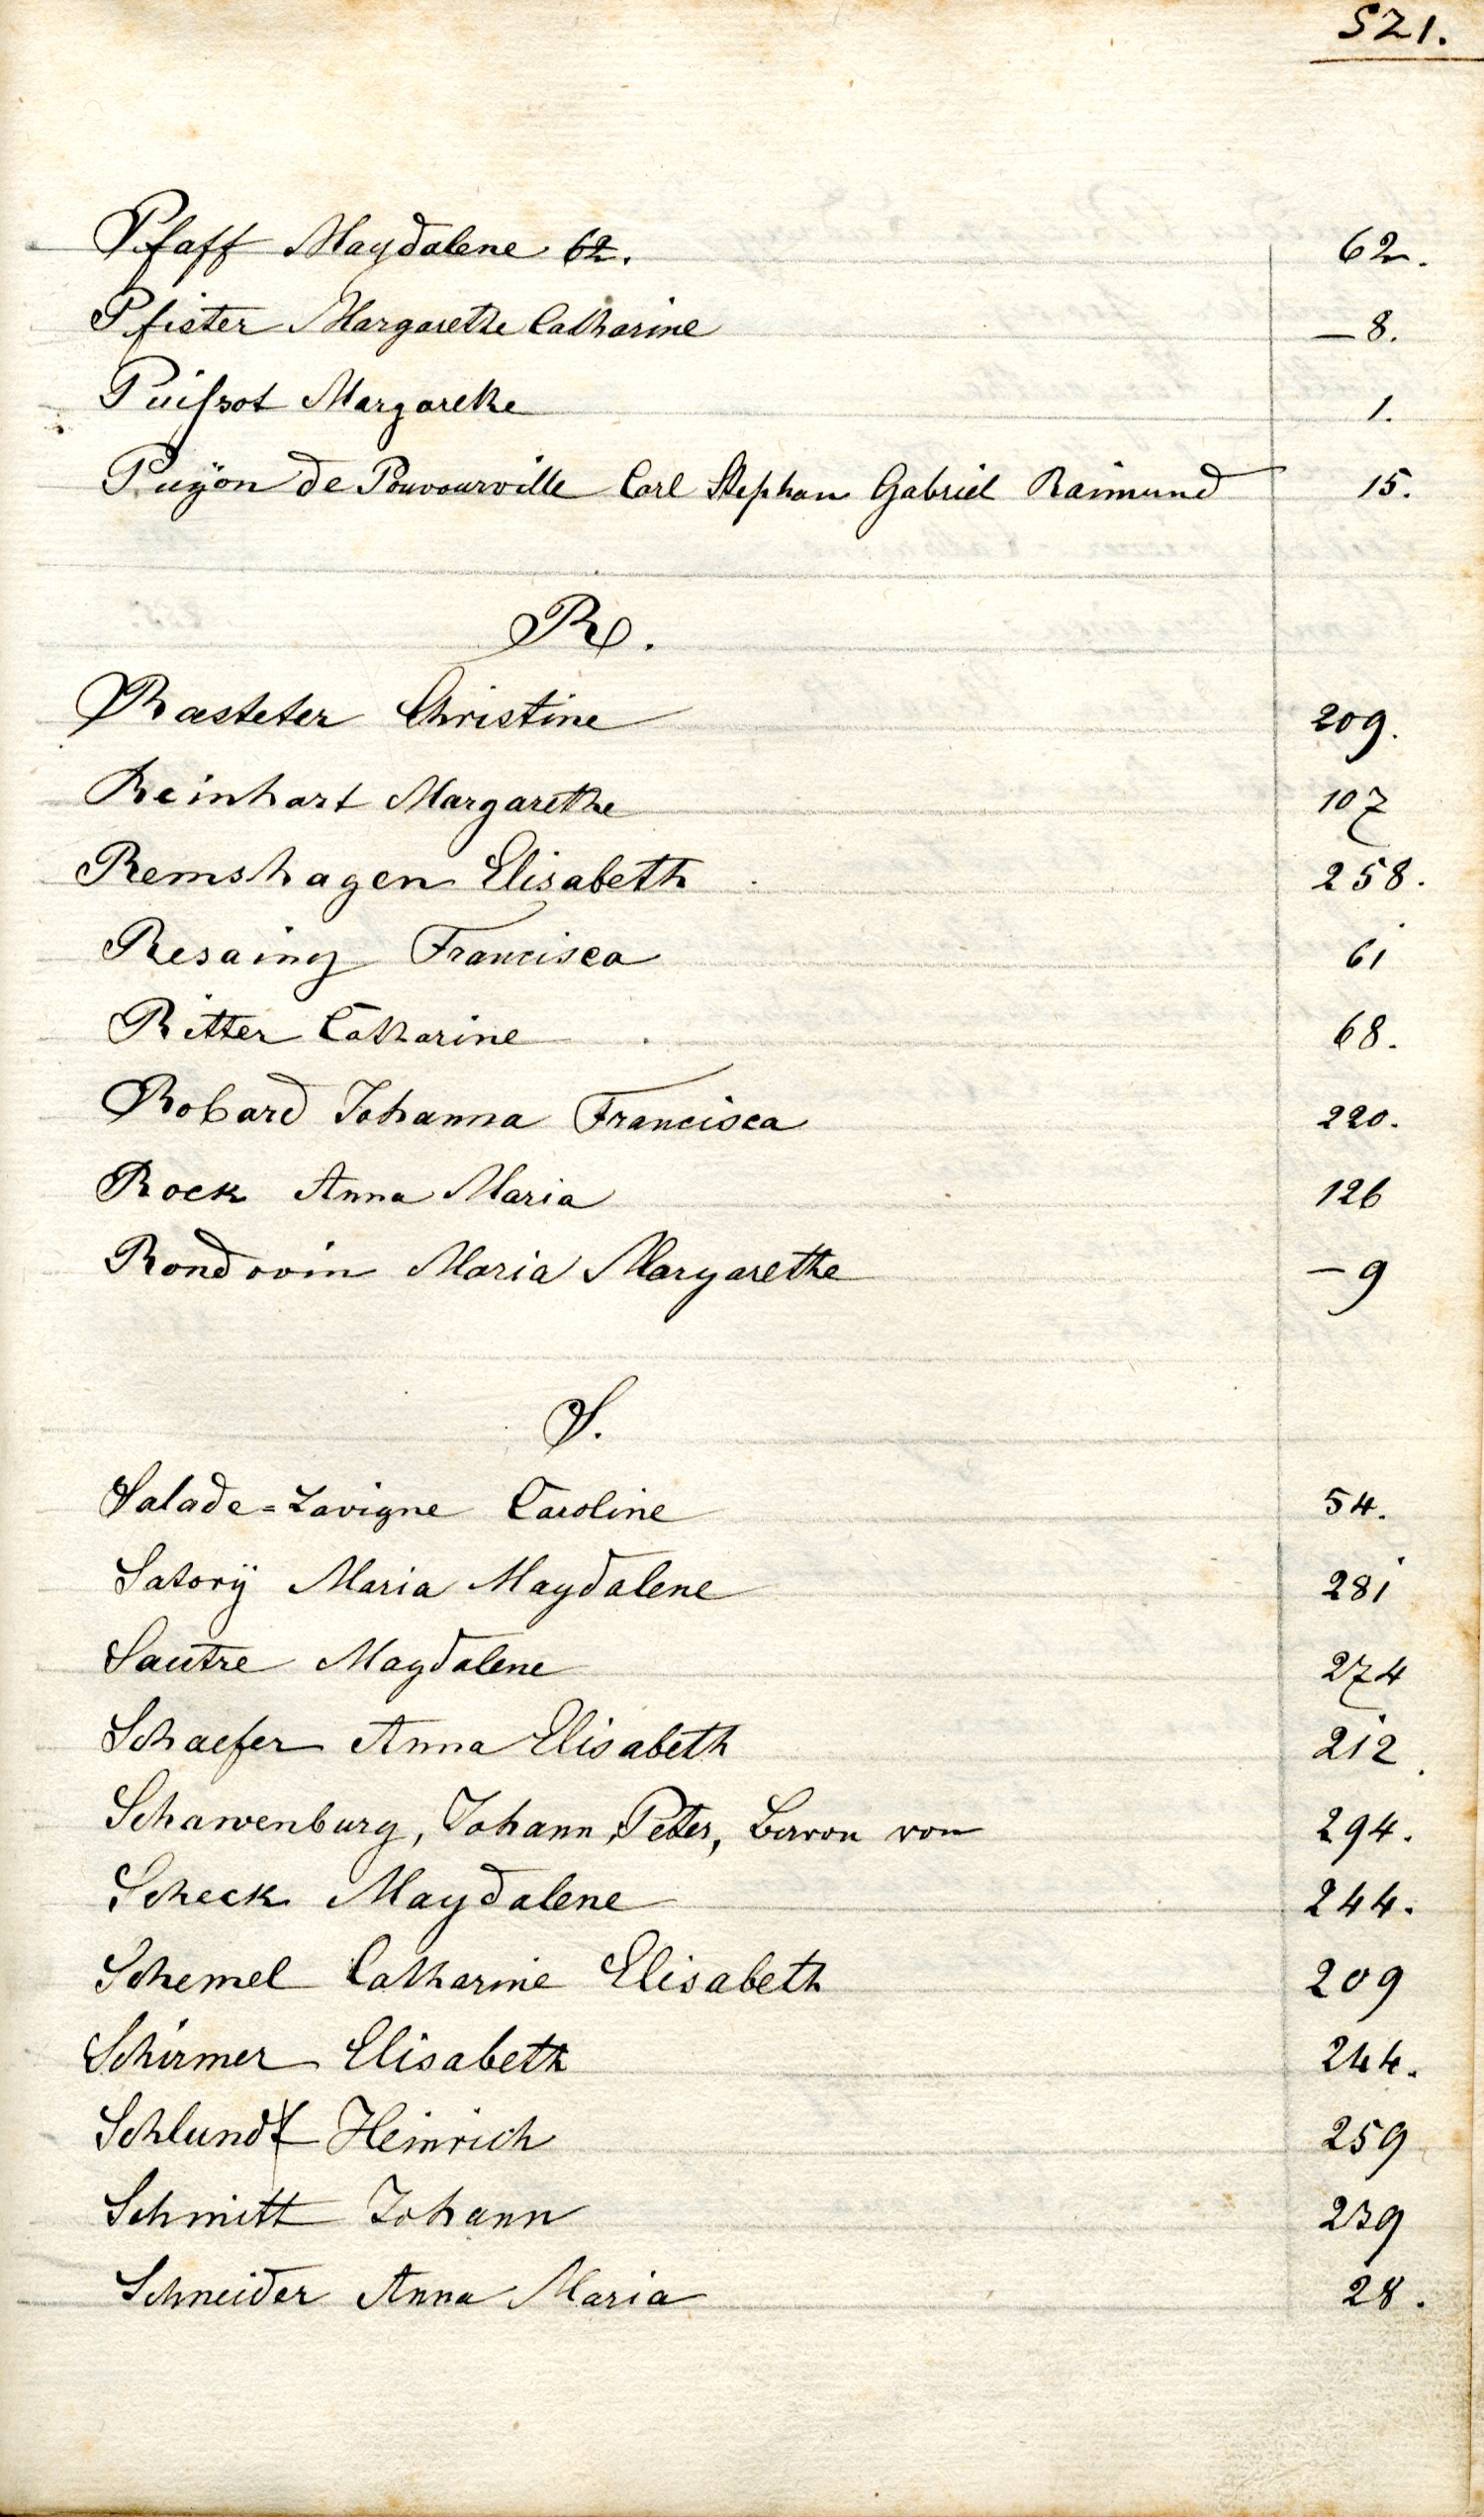 521.
Pfaff Magdalene 62. 62.
Pfister Margarethe Catharine — 8.
Puißot Margarethe 1.
Puÿon de Pouvourville Carl Stephan Gabriel Raimund 15.
R.
Rasteter Christine 209.
Reinhart Margarethe 107
Remshagen Elisabeth 258.
Resaing Francisca 61
Ritter Catharine 68.
Robard Johanna Francisca 220.
Rock Anna Maria 126
Rondovin Maria Margarethe — 9
S.
Salade=Lavigne Caroline 54.
Satorÿ Maria Magdalene 281
Sautre Magdalene 274
Schaefer Anna Elisabeth 212.
Schawenburg, Johann, Peter, Baron von 294.
Scheck Magdalene 244.
Schemel Catharine Elisabeth 209
Schirmer Elisabeth 244.
Schlundt Heinrich 259
Schmitt Johann 239
Schneider Anna Maria 28.